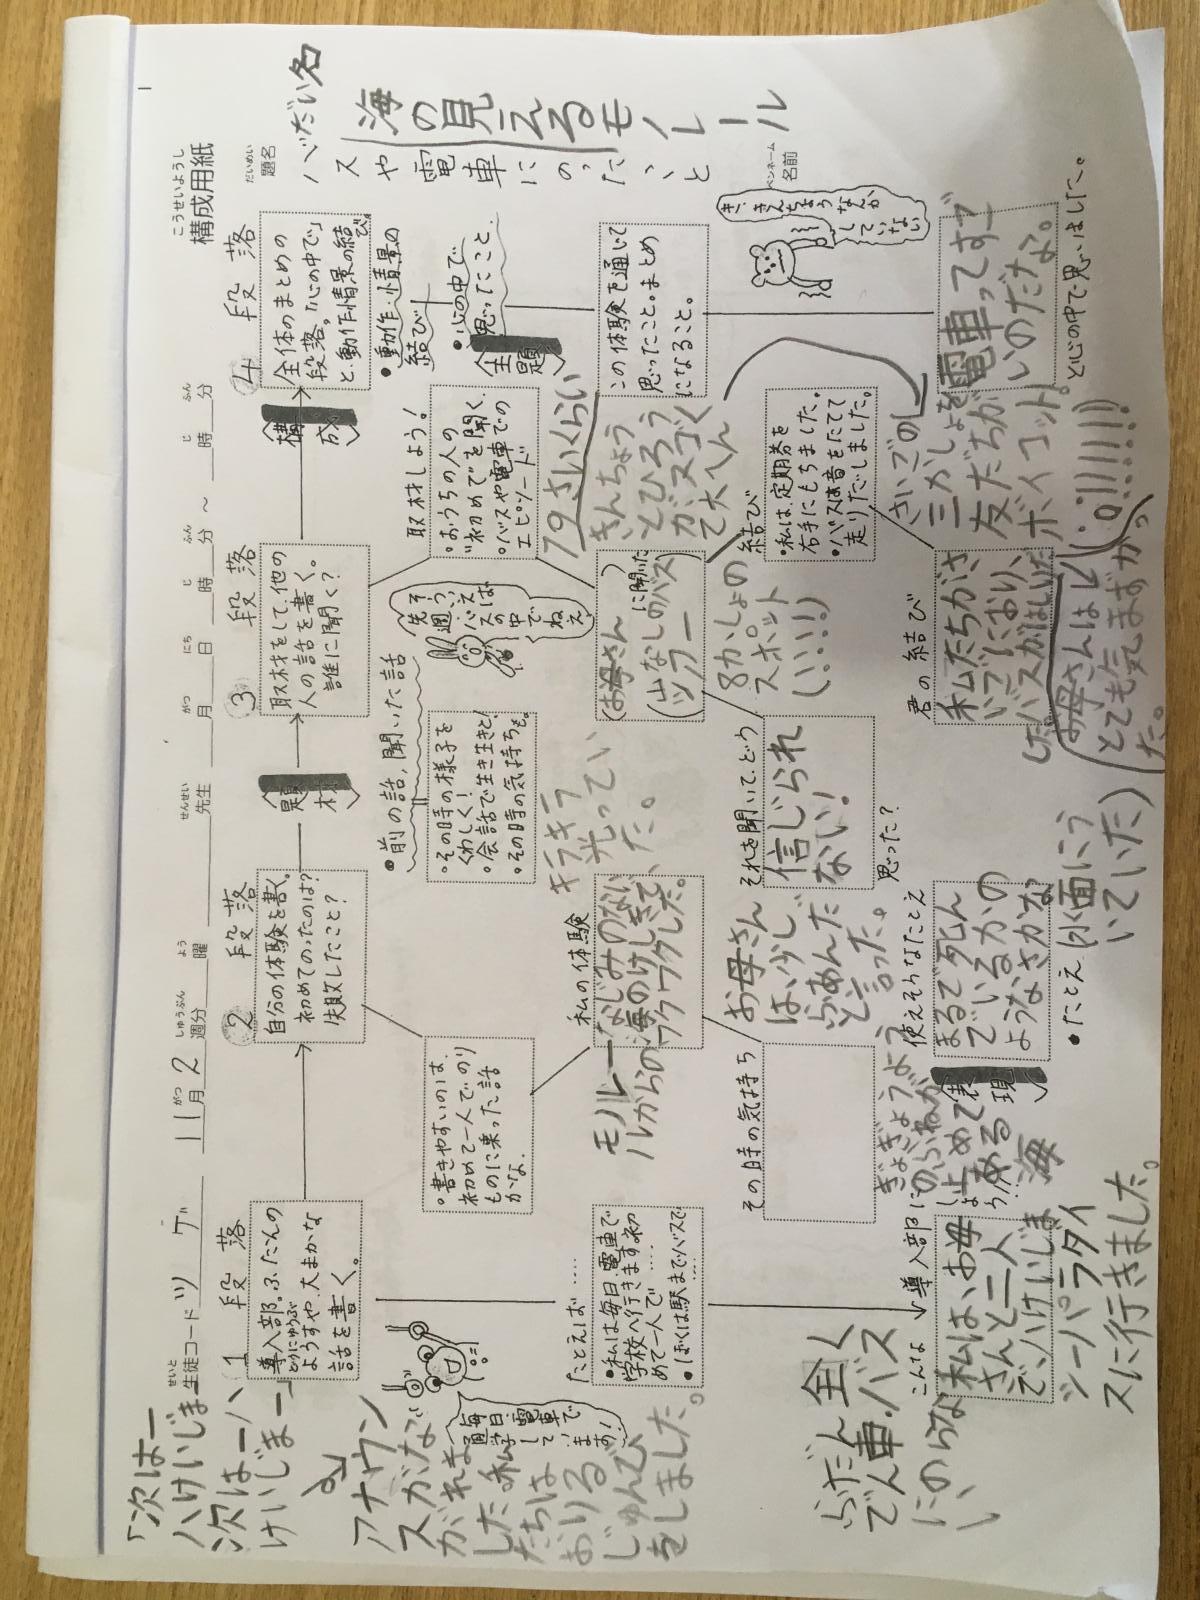 こうせいようし
構成用紙
だいめい
題名
バスや電車にのったこと
だい名
海の見えるモノレール
ペンネーム
名前
せいと
生徒コード ツ ゲ
11月 2 週分
がつ
しゅうぶん
よう
曜
せんせい
先生
がつ にち じ ふん じ ふん
月 日 時 分 ～ 時 分
1 段落
導入部。ふだんの
どうにゅうぶ
ようすや、大まかな
話を書く。
2 段落
自分の体験を書く。
初めてのったのは?
失敗したこと?
題材
3 段落
取材をして、他の
人の話を書く。
誰に聞く?
構成
4 段落
全体のまとめの
段落。「心の中で」
と、動作情景の結び
「次はー
ハけいじまー
次はーハ
けいじまー」
アナウン
スがなが
がれま
した私
たちは
おりる
じゅんび
をしました。
毎日、電車で
通学して
います!
たとえば……
・私は毎日、電車で
学校へ行きます。初
めて一人で……
・ぼくは駅までバスで
……
こんな 導入部に
私は、お母
さんと二人
で、ハけいじま
シーパラダイ
スに行きました。
ふだん全く
でん車・バス
にのらな
い
・書きやすいのは、
初めて一人でのり
ものに乗った話
かな。
私の体験
モノレー
ルからの
なじみのない
海のけしきで、
ワクワクした。
キラキラ
光ってい
た。
その時の気持ち
ぎょぎょうよう
のふねが
止めて
ある
海
・前の話,聞いた話
・その時の様子を
くわしく!
・会話で生き生きと!
・その時の気持ちも。
そう、
先週
バスの中でねえ
取材しよう!
・おうちの人の
"初めて"を聞く、
・バスや電車での
エピソード
19さいくらい
きんちょう
とひろう
がスゴく
て大へん
(お母さん)
に聞いた
(山なしのバス)
ツアー
8かしょの
スポット
(!!!!)
それを聞いて、どう
思った?
信じられ
ない!
お母さん
は、少し、
らあんだ
と言った。
表現
使えそうなたとえ
まるで死ん
でいるかの
ようなさかな
・たとえ
(水面にう
いていた)
結び
・私は、定期券を
右手にもちました。
・バスは音をたてて
走りだしました。
さいごの
三かしょを
友だちが
ボイコット。
(!!!!!!!)
君の結び
私たちがさ
いごにおり、
バスがはしりだ
した。
(お母さんは
とても気まずかっ
た。
・動作・情景の
結び
・心の中で
思ったこと
主題
この体験を通じて
思ったこと。まとめ
になること。
き、きんちょうなんか
していない
電車ってすご
いのだな。
と心の中で思いました。